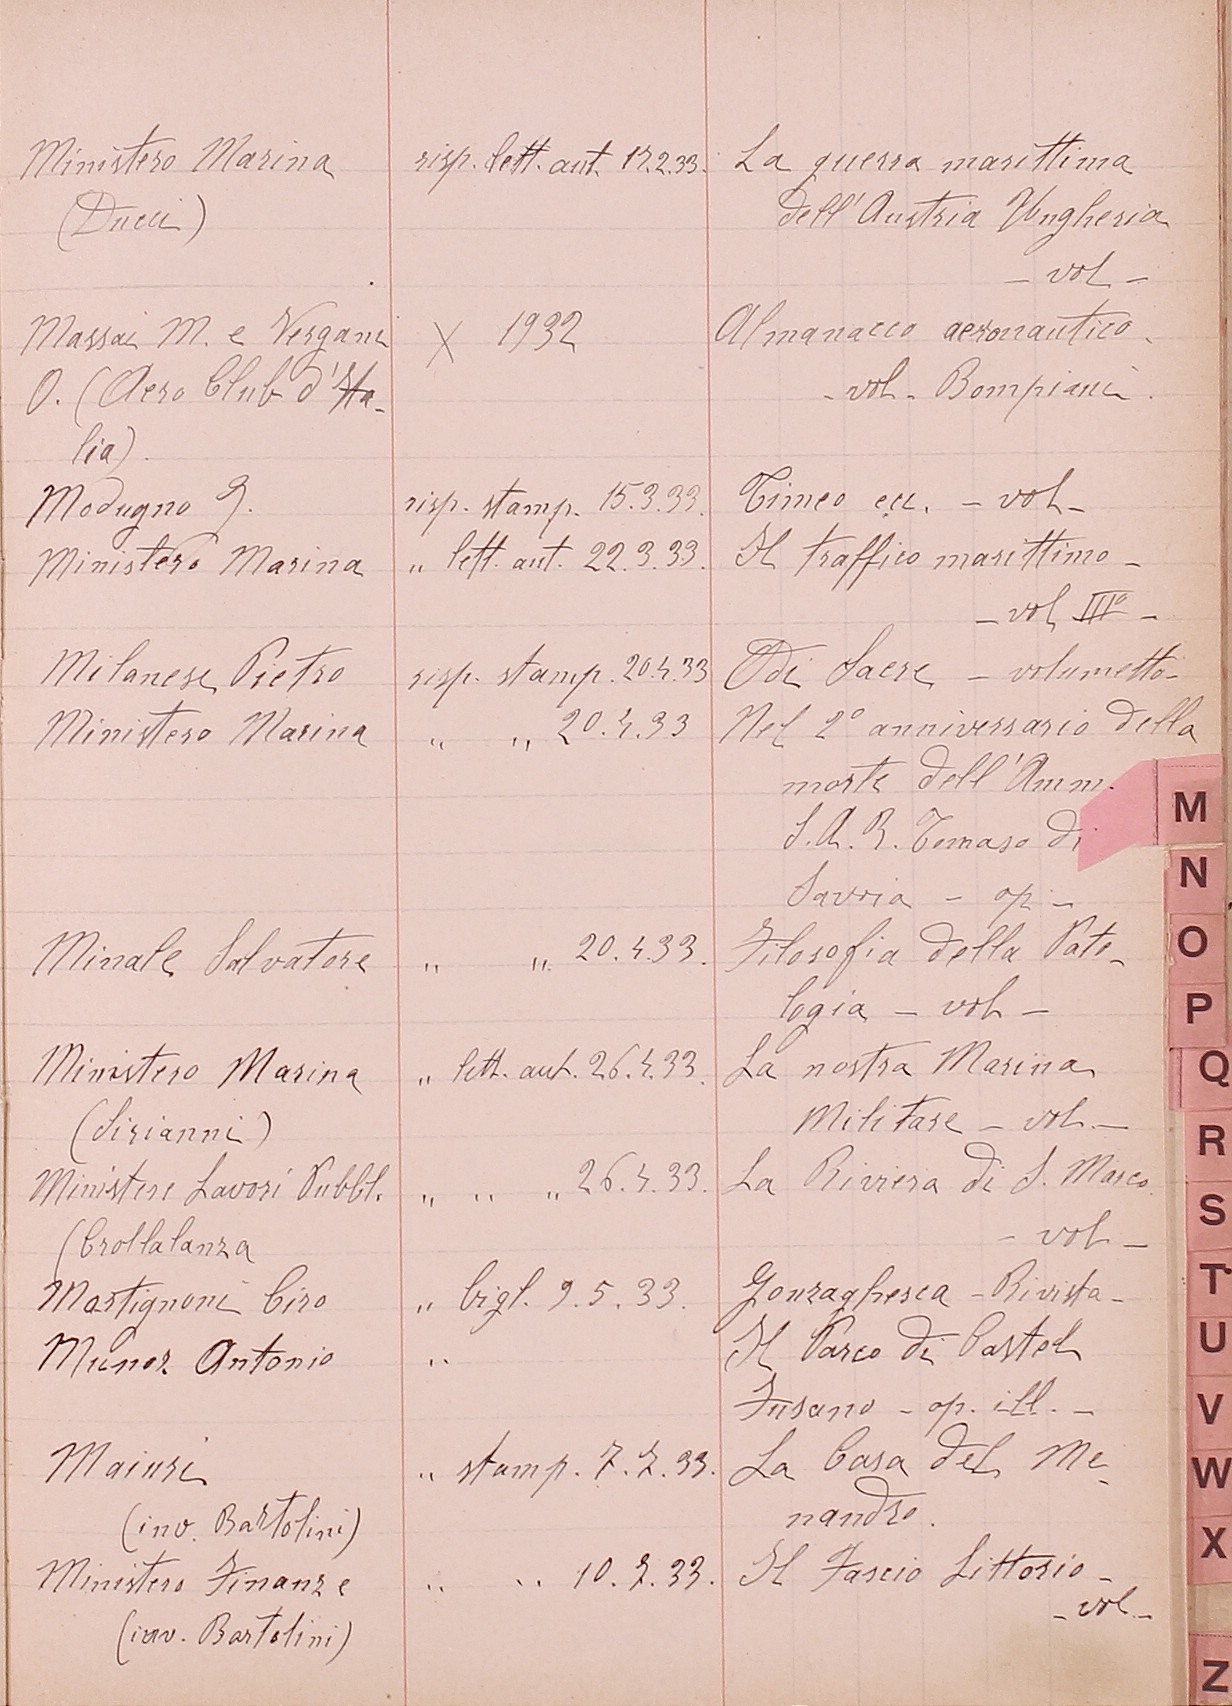 Ministero Marina risp. lett. aut. 17.2.33. La guerra marittima
(Ducci) dell'Austria Ungheria
- vol -
Massai M. e Vergani X 1932 Almanacco aeronautico.
O. (Aero Club d'Ita- - vol - Bompiani.
lia).
Modugno G. risp. stamp. 15.3.33. Timeo ecc. - vol -
Ministero Marina „ lett. aut. 22.3.33. Il traffico marittimo -
- vol IIIº -
Milanese Pietro risp. stamp. 20.4.33 Odi Sacre - volumetto -
Ministero Marina „ „ 20.4.33 Nel 2º anniversario della
morte dell'Amm.
S.A.R. Tomaso di
Savoia - op -
Minale Salvatore „ „ 20.4.33. Filosofia della Pato-
logia - vol -
Ministero Marina „ lett. aut. 26.4.33. La nostra Marina
(Sirianni) Militare - vol. -
Ministero Lavori Pubbl. „ „ „ 26.4.33. La Riviera di S. Marco
(Crollalanza - vol -
Martignoni Ciro „ bigl. 9.5.33. Gonzaghesca - Rivista -
Munoz Antonio „ Il Parco di Castel
Fusano - op. ill. -
Maiuri „ stamp. 7.7.33. La Casa del Me-
(inv. Bartolini) nandro.
Ministero Finanze „ „ 10.7.33. Il Fascio Littorio -
- vol -
(inv. Bartolini)
M
N
O
P
Q
R
S
T
U
V
W
X
Z